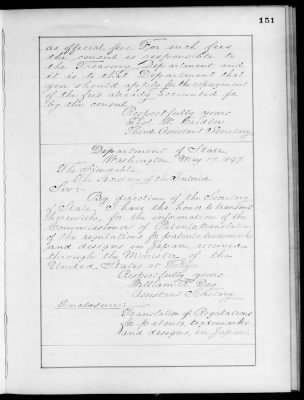 151
as official fees. For such fees
the consul is responsible to
the Treasury Department and
it is to that Department that
you should apply for the repayment
of the fees already accounted for
by the consul.
Respectfully yours
Thos. W. Cridler
Third Assistant Secretary
Department of State,
Washington, May 17, 1897.
The Honorable
The Secretary of the Interior
Sir:-
By direction of the Secretary
of State, I have the honor to transmit
herewith, for the information of the
Commissioner of Patents, translation
of the regulations for patents, trademarks
and designs in Japan, received
through the Minister of the
United States at Tokyo.
Respectfully yours
William R. Day
Assistant Secretary
Enclosure:-
Translation of Regulations
for patents, trademarks
and designs, in Japan.